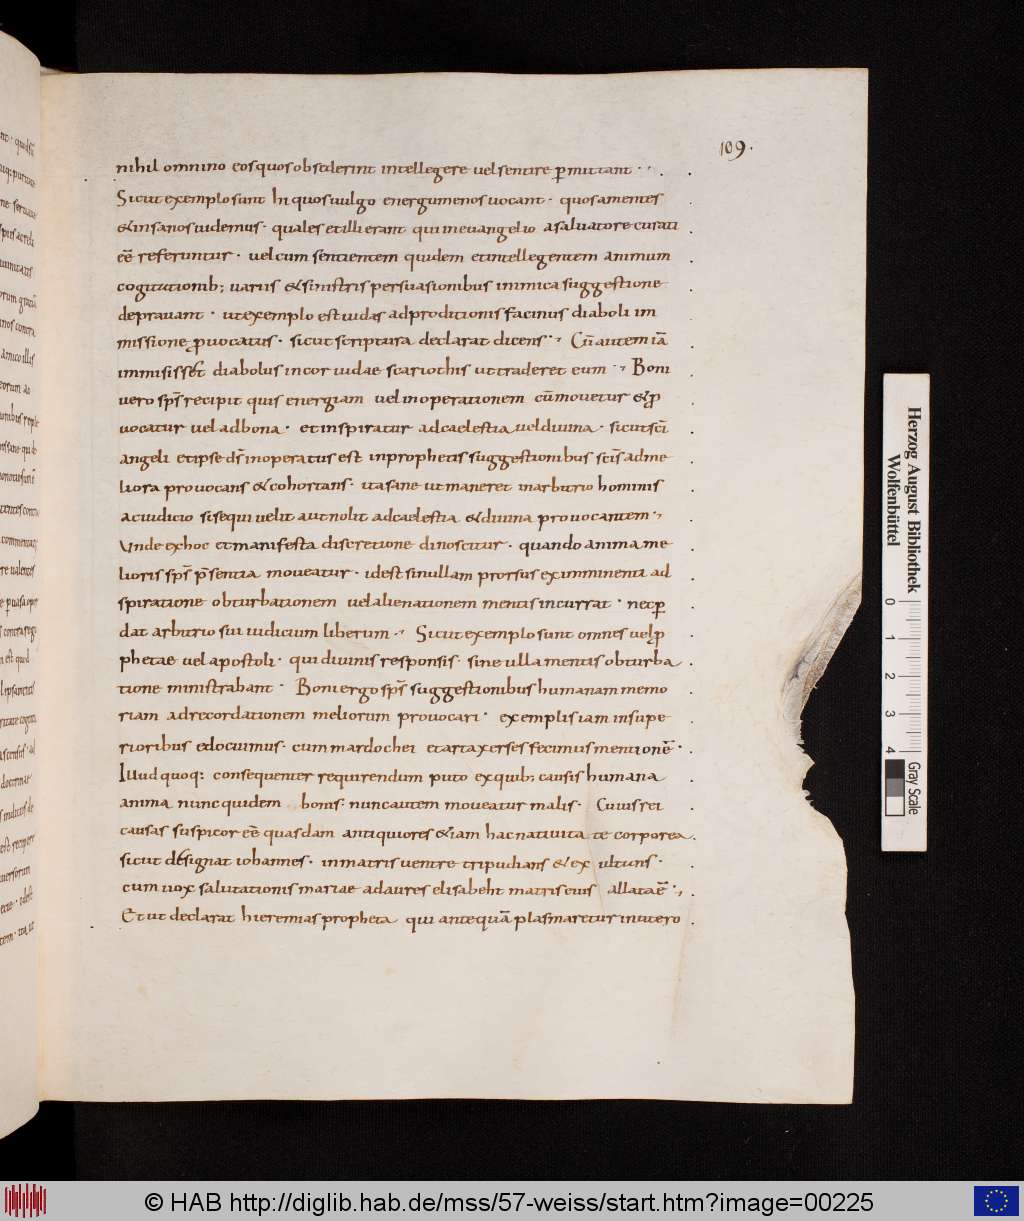 109.
nihil omnino eos quos obsederint intellegere vel sentire ꝑmittant ·
Sicut exemplo sunt hi quos vulgo energumenos vocant · quos amentes
& insanos videmus · quales et illi erant qui in evangelio a salvatore curati
eē referuntur · vel cum sentientem quidem et intellegentem animum
cogitationib; variis & sinistris persuasionibus inimica suggestione
depravant · ut exemplo est iudas ad proditionis facinus diaboli im
missione ꝓvocatus · sicut scriptura declarat dicens · Cū autem iā
immisisset diabolus in cor iudae scariothis ut traderet eum · Boni
vero sp̄s recipit quis energiam vel in operationem cū movetur & ꝓ
vocatur vel ad bona · et inspiratur ad caelestia vel divina · sicut sc̄i
angeli et ipse ds̄ inoperatus est in prophetis suggestionibus sc̄is ad me
liora provocans & cohortans · ita sane ut maneret in arbitrio hominis
ac iudicio si sequi velit aut nolit ad caelestia & divina provocantem ·
Unde ex hoc et manifesta discretione dinoscitur · quando anima me
lioris sp̄s p̄sentia moveatur · id est si nullam prorsus ex imminenti ad
spiratione obturbationem vel alienationem mentis incurrat · nec ꝑ
dat arbitrio sui iudicium liberum · Sicut exemplo sunt omnes vel ꝓ
phetae vel apostoli · qui divinis responsis · sine ulla mentis obturba
tione ministrabant · Boni ergo sp̄s suggestionibus humanam memo
riam ad recordationem meliorum provocari · exemplis iam in supe
rioribus edocuimus · cum mardochei et artaxerses fecimus mentionē ·
Illud quoq: consequenter requirendum puto ex quib; causis humana
anima nunc quidem bonis · nunc autem moveatur malis · Cuius rei
causas suspicor eē quasdam antiquiores & iam hac nativita te corporea
sicut designat iohannes · in matris ventre tripudians & ex ultans ·
cum vox salutationis mariae ad aures elisabeht matris eius allata ē ·
Et ut declarat hieremias propheta qui antequā plasmaretur in utero
Herzog August Bibliothek
Wolfenbüttel
0 1 2 3 4
Gray Scale
© HAB http://diglib.hab.de/mss/57-weiss/start.htm?image=00225